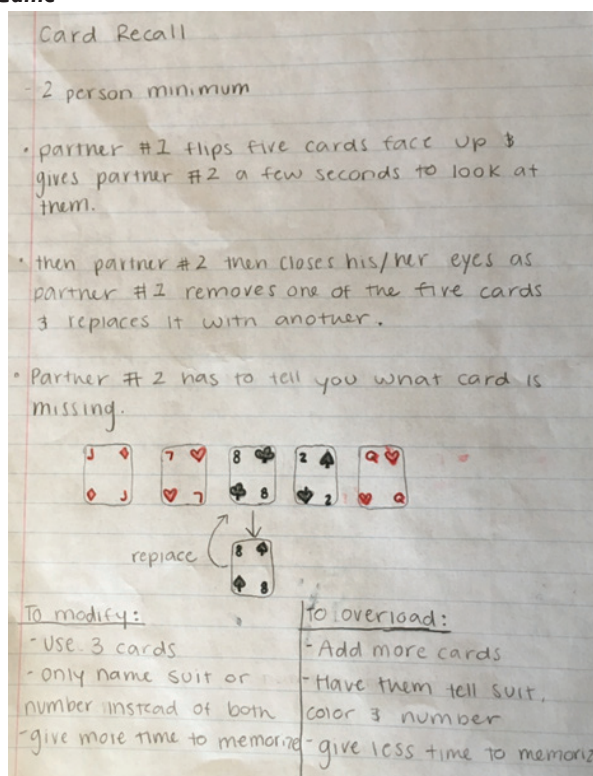 Card Recall
- 2 person minimum
• partner #1 flips five cards face up &
gives partner #2 a few seconds to look at
them.
• then partner #2 then closes his/her eyes as
partner #1 removes one of the five cards
& replaces it with another.
• Partner #2 has to tell you what card is
missing.
J 7 8 2 Q
J 7 8 2 Q
replace
8
8
To modify:
- Use 3 cards
- only name suit or
number instead of both
- give more time to memorize
To overload:
- Add more cards
- Have them tell suit,
color & number
- give less time to memoriz